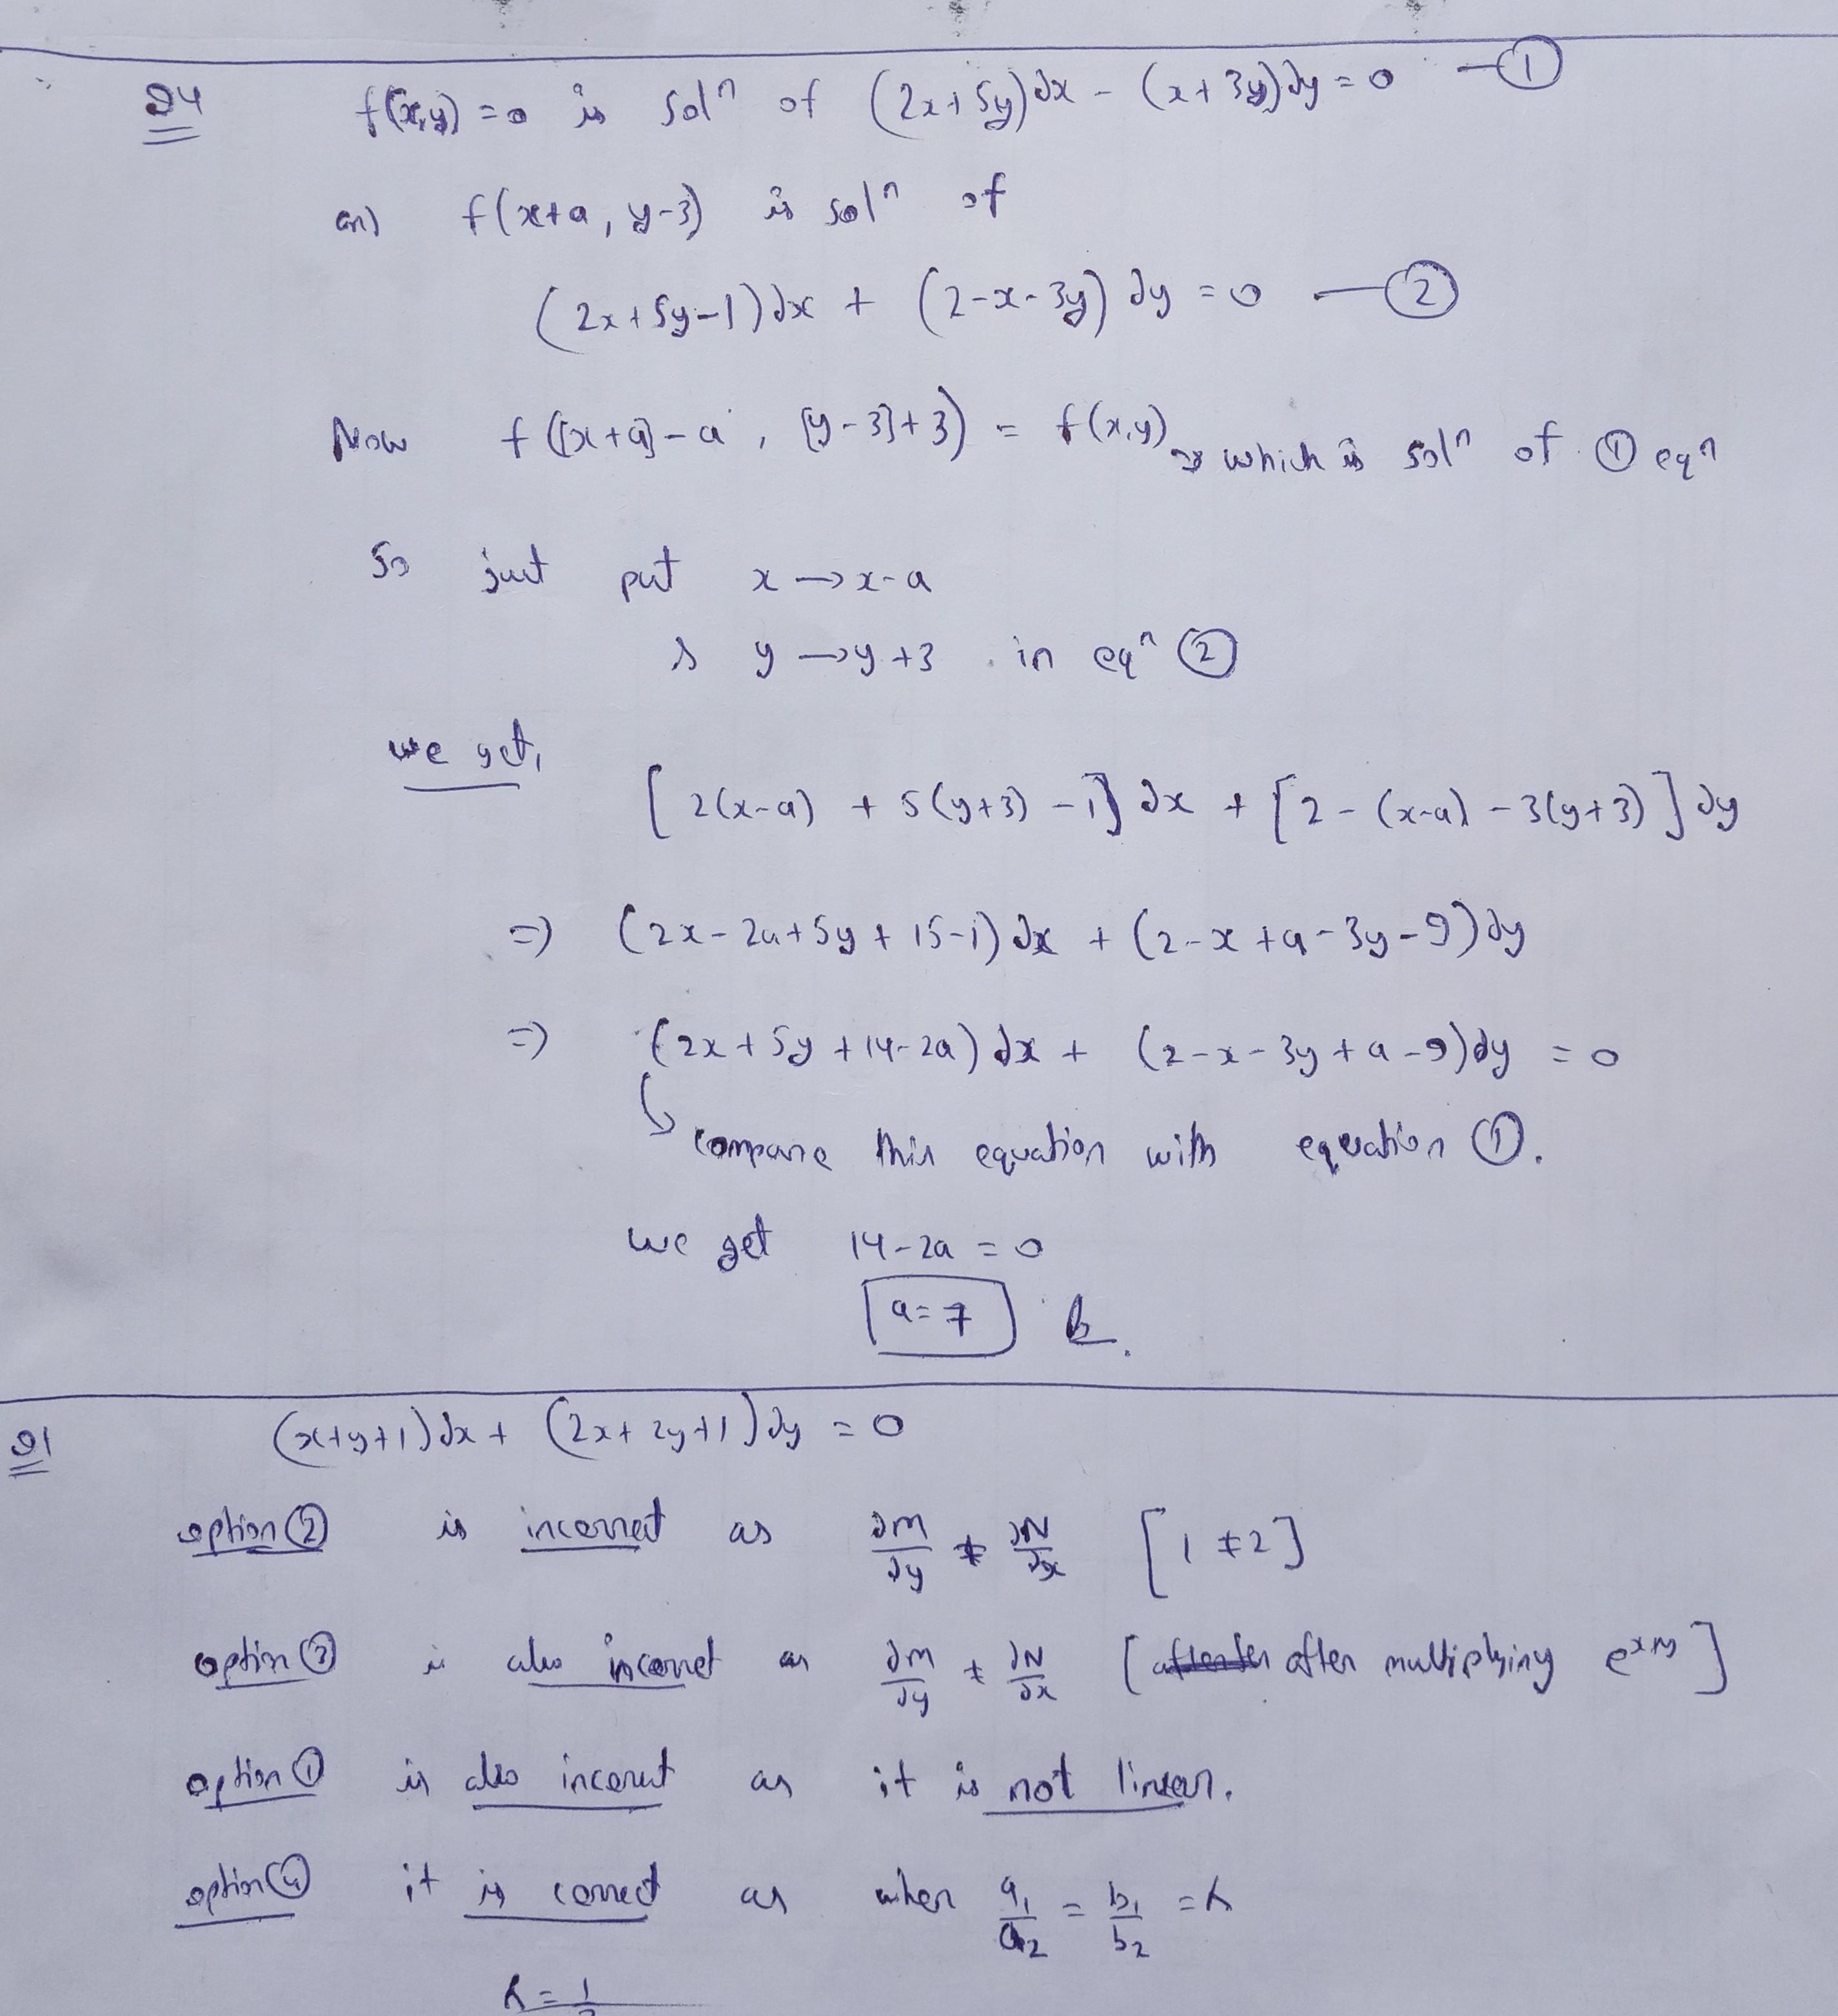 24 f(x,y) = 0 is solⁿ of (2x+5y)dx - (x+3y)dy = 0 — ①
f(x+a, y-3) is solⁿ of
(2x+5y-1)dx + (2-x-3y) dy = 0 — ②
Now f([x+a]-a, [y-3]+3) = f(x,y) which is solⁿ of ① eqⁿ
So just put x → x-a
& y → y+3 in eqⁿ ②
we get,
[2(x-a) + 5(y+3) -1] dx + [2-(x-a) -3(y+3)] dy
⇒ (2x-2a+5y+15-1) dx + (2-x+a-3y-9) dy
⇒ (2x+5y+14-2a) dx + (2-x-3y+a-9)dy = 0
compare this equation with equation ①.
we get 14-2a = 0
a=7
21 (x+y+1)dx + (2x+2y+1)dy = 0
option ② is incorrect as ∂M/∂y ≠ ∂N/∂x [1 ≠ 2]
option ③ is also incorrect as ∂M/∂y ≠ ∂N/∂x [after multiplying e^(x+y)]
option ① is also incorrect as it is not linear.
option ④ it is correct as when a₁/a₂ = b₁/b₂ = k
k = 1/2